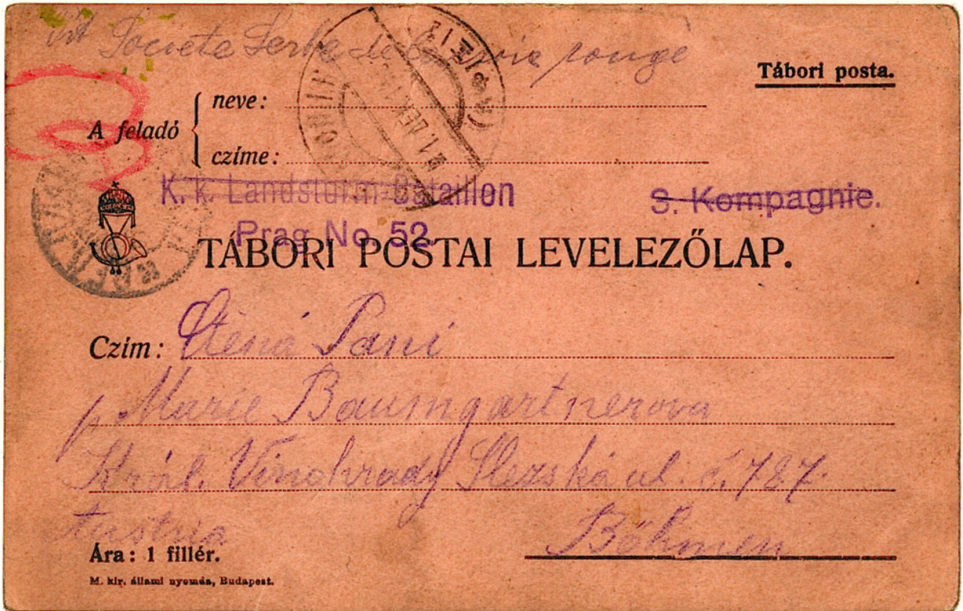 Société Serbe de Croix rouge
Tábori posta.
A feladó
neve:
czíme:
K. k. Landsturm-Bataillon
Prag No. 52.
S. Kompagnie.
TÁBORI POSTAI LEVELEZŐLAP.
Czím: Ctěná Paní
Marie Baumgartnerova
Král. Vinohrady Slezská ul. č. 787.
Austria
Böhmen
Ára: 1 fillér.
M. kir. állami nyomda, Budapest.